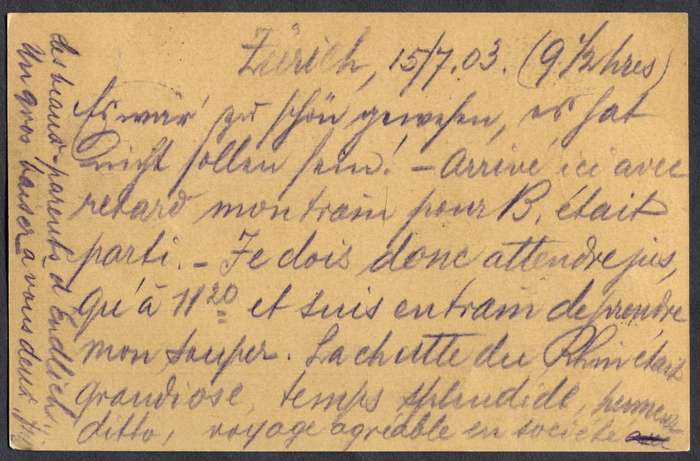 Zürich, 15/7.03. (9 ½ hres)
Es wär' zu schön gewesen, es hat
nicht sollen sein! - Arrivé ici avec
retard mon train pour B. était
parti. - Je dois donc attendre jus,
qu'à 11 20 et suis en train de prendre
mon souper. La chutte du Rhin était
grandiose, temps splendide,
ditto, voyage agréable en société
des beaux-parents d'Endlich
Un gros baiser à vous deux